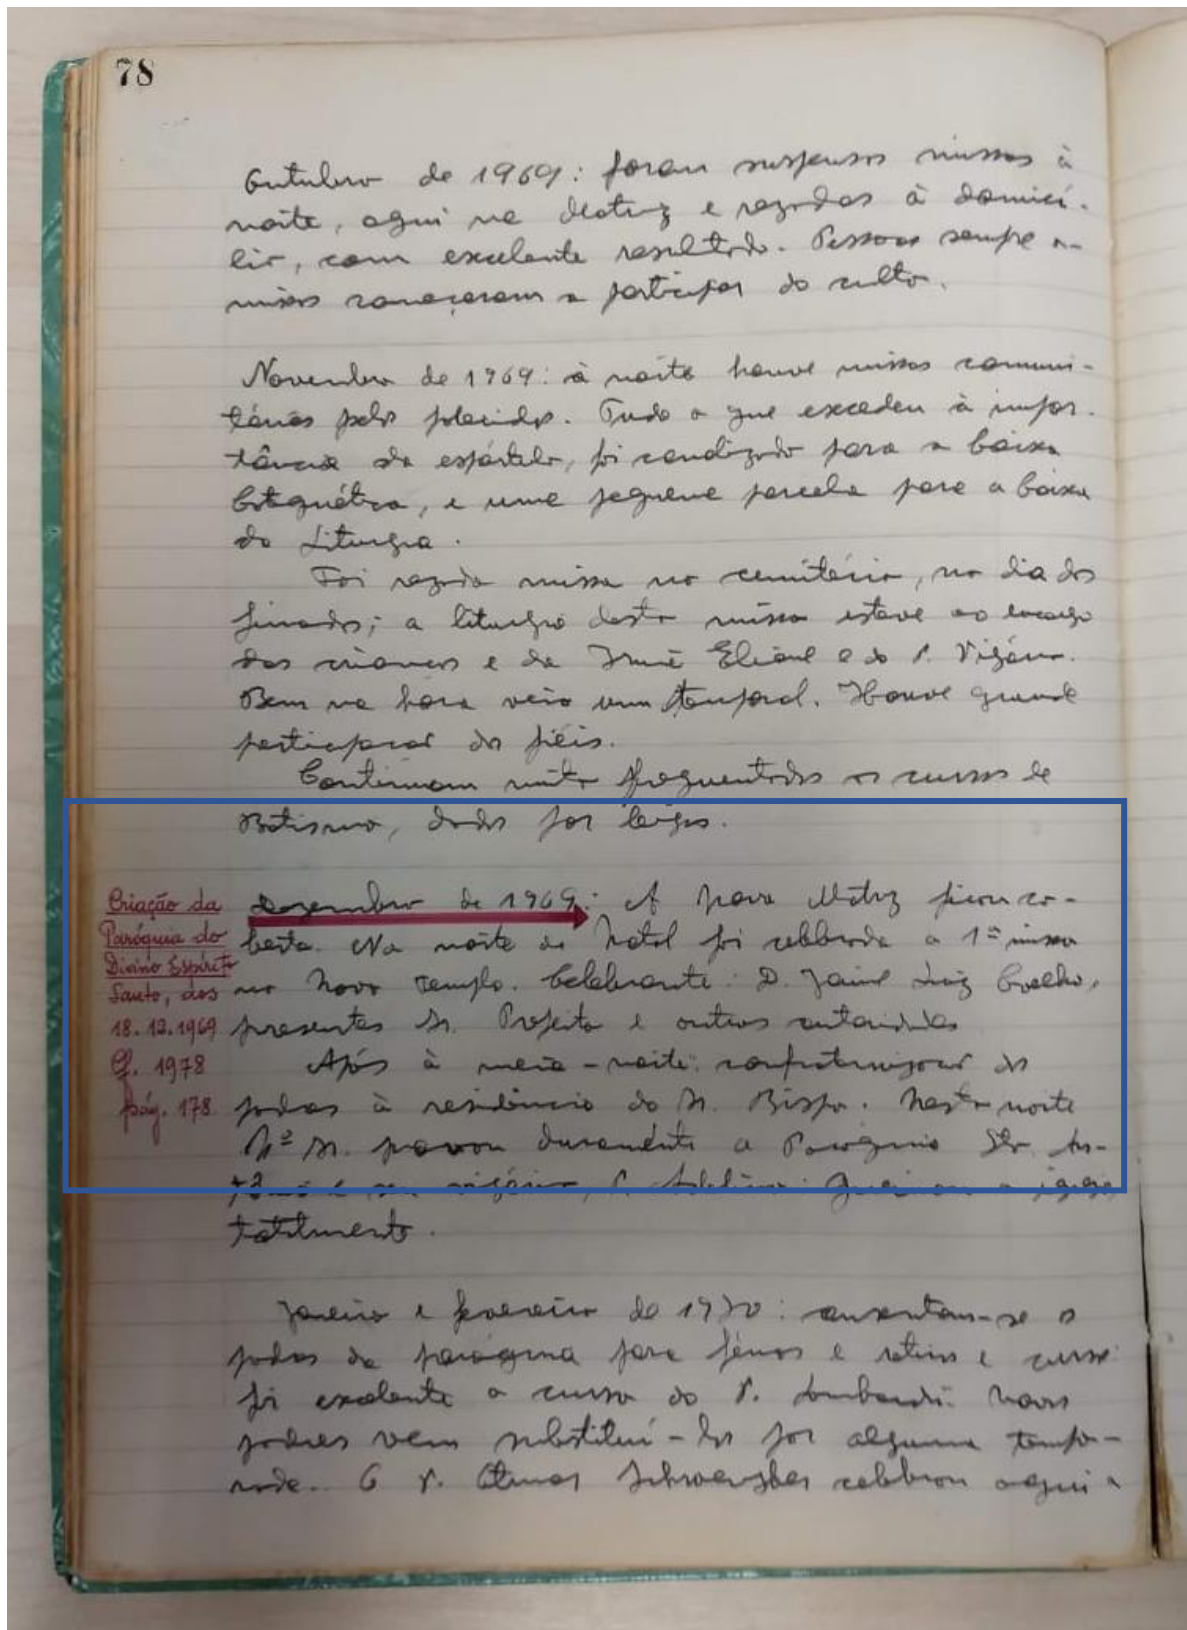 78
Outubro de 1969: foram suspensos missas à
noite, aqui na Matriz e rezadas à domicí-
lio, com excelente resultado. Pessoas sempre o-
missos começaram a participar do culto.
Novembro de 1969: à noite houve missas comuni-
tárias pelos falecidos. Tudo o que excedeu à impor-
tância da espórtula, foi canalizado para a Caixa
Catequética, e uma pequena parcela para a Caixa
da Liturgia.
Foi rezada missa no cemitério, no dia dos
finados; a liturgia desta missa esteve ao encargo
das crianças e da Irmã Eliane e do P. Vigário.
Bem na hora veio um temporal. Houve grande
participação dos fiéis.
Continuam muito frequentados os cursos de
Batismo, dados por leigos.
Criação da
Paróquia do
Divino Espírito
Santo, aos
18.12.1969
Cf. 1978
pág. 178
Dezembro de 1969: A nova Matriz ficou co-
berta. Na noite de Natal foi celebrada a 1ª missa
no novo templo. Celebrante: D. Jaime Luiz Coelho,
presentes Sr. Prefeito e outras autoridades
Após à meia-noite: confraternização dos
padres à residência do Sr. Bispo. Nesta noite
Nº Sr. provou duramente a Paróquia Sto. An-
tônio e seu vigário, P. Queimou a igreja
totalmente.
Janeiro e fevereiro de 1970: ausentam-se os
padres da paróquia para férias e retiros e curso
foi excelente o curso do P. Lombardi. Novos
padres vem substituí-los por alguma tempo-
rada. O P. celebrou aqui a